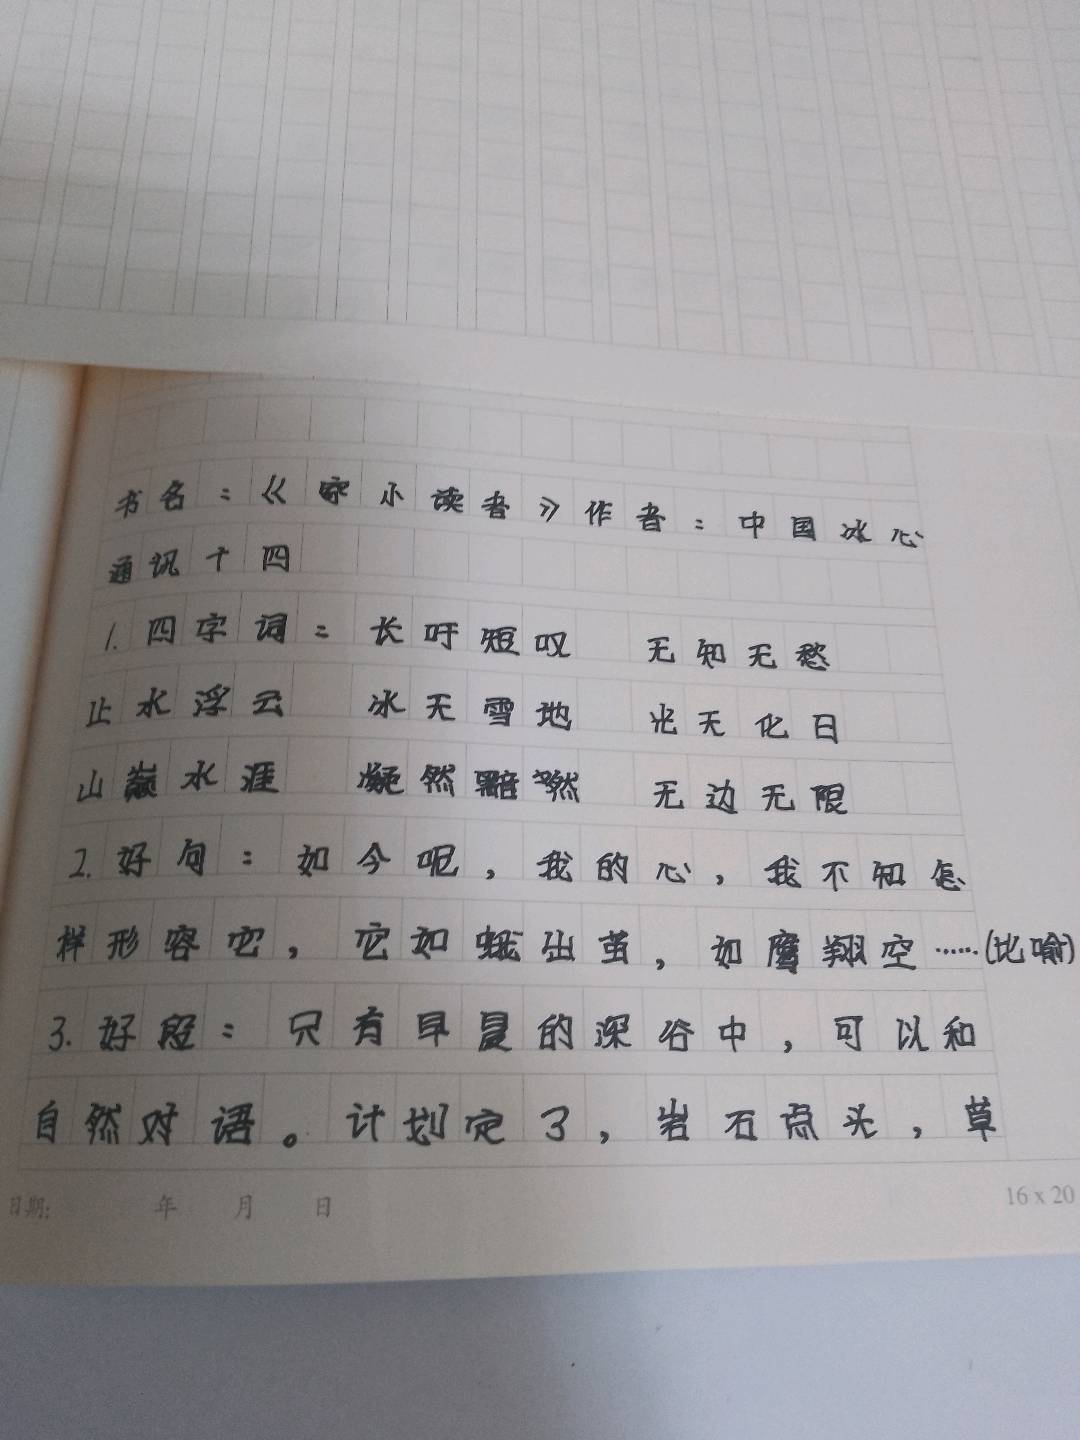 书名：《寄小读者》作者：中国冰心
通讯十四
1.四字词：长吁短叹 无知无愁
止水浮云 冰天雪地 光天化日
山巅水涯 凝然黯然 无边无限
2.好句：如今呢，我的心，我不知怎
样形容它，它如蛾出茧，如鹰翔空……(比喻)
3.好段：只有早晨的深谷中，可以和
自然对语。计划定了，岩石点头，草
日期： 年 月 日
16 x 20